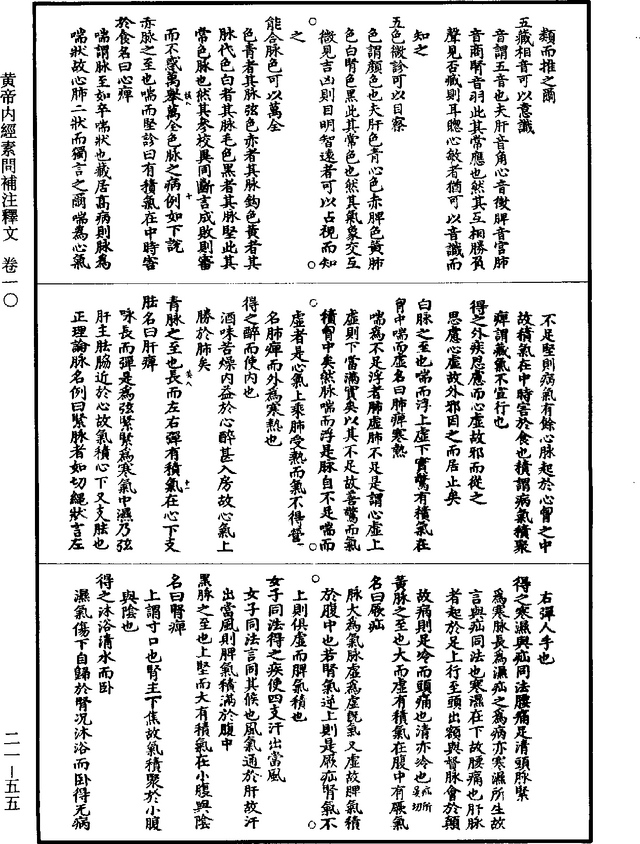 類而推之爾
五藏相音可以意識
音謂五音也夫肝音角心音徵脾音宮肺
音商腎音羽此其常應也然其互相勝負
聲見否臧則耳聰心敏者猶可以音識而
知之
五色微診可以目察
色謂顏色也夫肝色青心色赤脾色黃肺
色白腎色黑此其常色也然其氣象交互
微見吉凶則目明智遠者可以占視而知
之
能合脉色可以萬全
色青者其脉弦色赤者其脉鈎色黃者其
脉代色白者其脉毛色黑者其脉堅此其
常色脉也然其參校異同斷言成敗則審
而不惑萬舉萬全色脉之病例如下說
赤脉之至也喘而堅診曰有積氣在中時害
於食名曰心痹
喘謂脉至如卒喘狀也藏居高病則脉為
喘狀故心肺二狀而獨言之爾喘為心氣
不足堅則病氣有餘心脉起於心胷之中
故積氣在中時害於食也積謂病氣積聚
痹謂藏氣不宣行也
得之外疾思慮而心虛故邪而從之
思慮心虛故外邪因之而居止矣
白脉之至也喘而浮上虛下實驚有積氣在
胷中喘而虛名曰肺痹寒熱
喘為不足浮者肺虛肺不足是謂心虛上
虛則下當滿實矣以其不足故善驚而氣
積胷中矣然脉喘而浮是脉自不足喘而
虛者是心氣上乘肺受熱而氣不得營
名肺痹而外為寒熱也
得之醉而使內也
酒味苦燥內益於心醉甚入房故心氣上
勝於肺矣
青脉之至也長而左右彈有積氣在心下支
胠名曰肝痹
脉長而彈是為弦緊緊為寒氣中濕乃弦
肝主胠脇近於心故氣積心下又支胠也
正理論脉名例曰緊脉者如切繩狀言左
右彈人手也
得之寒濕與疝同法腰痛足清頭脉緊
為寒脉長為濕疝之為病亦寒濕所生故
言與疝同法也寒濕在下故腰痛也肝脉
者起於足上行至頭出額與督脉會於顛
故病則足冷而頭痛也清亦冷也
黃脉之至也大而虛有積氣在腹中有厥氣
名曰厥疝
脉大為氣脉虛為虛旣氣又虛故脾氣積
於腹中也若腎氣逆上則是厥疝腎氣不
上則俱虛而脾氣積也
女子同法得之疾使四支汗出當風
女子同法言同其候也風氣通於肝故汗
出當風則脾氣積滿於腹中
黑脉之至也上堅而大有積氣在小腹與陰
名曰腎痹
上謂寸口也腎主下焦故氣積聚於小腹
與陰也
得之沐浴清水而卧
濕氣傷下自歸於腎况沐浴而卧得无病
黄帝内經素問補注釋文　卷一〇
二一—五五